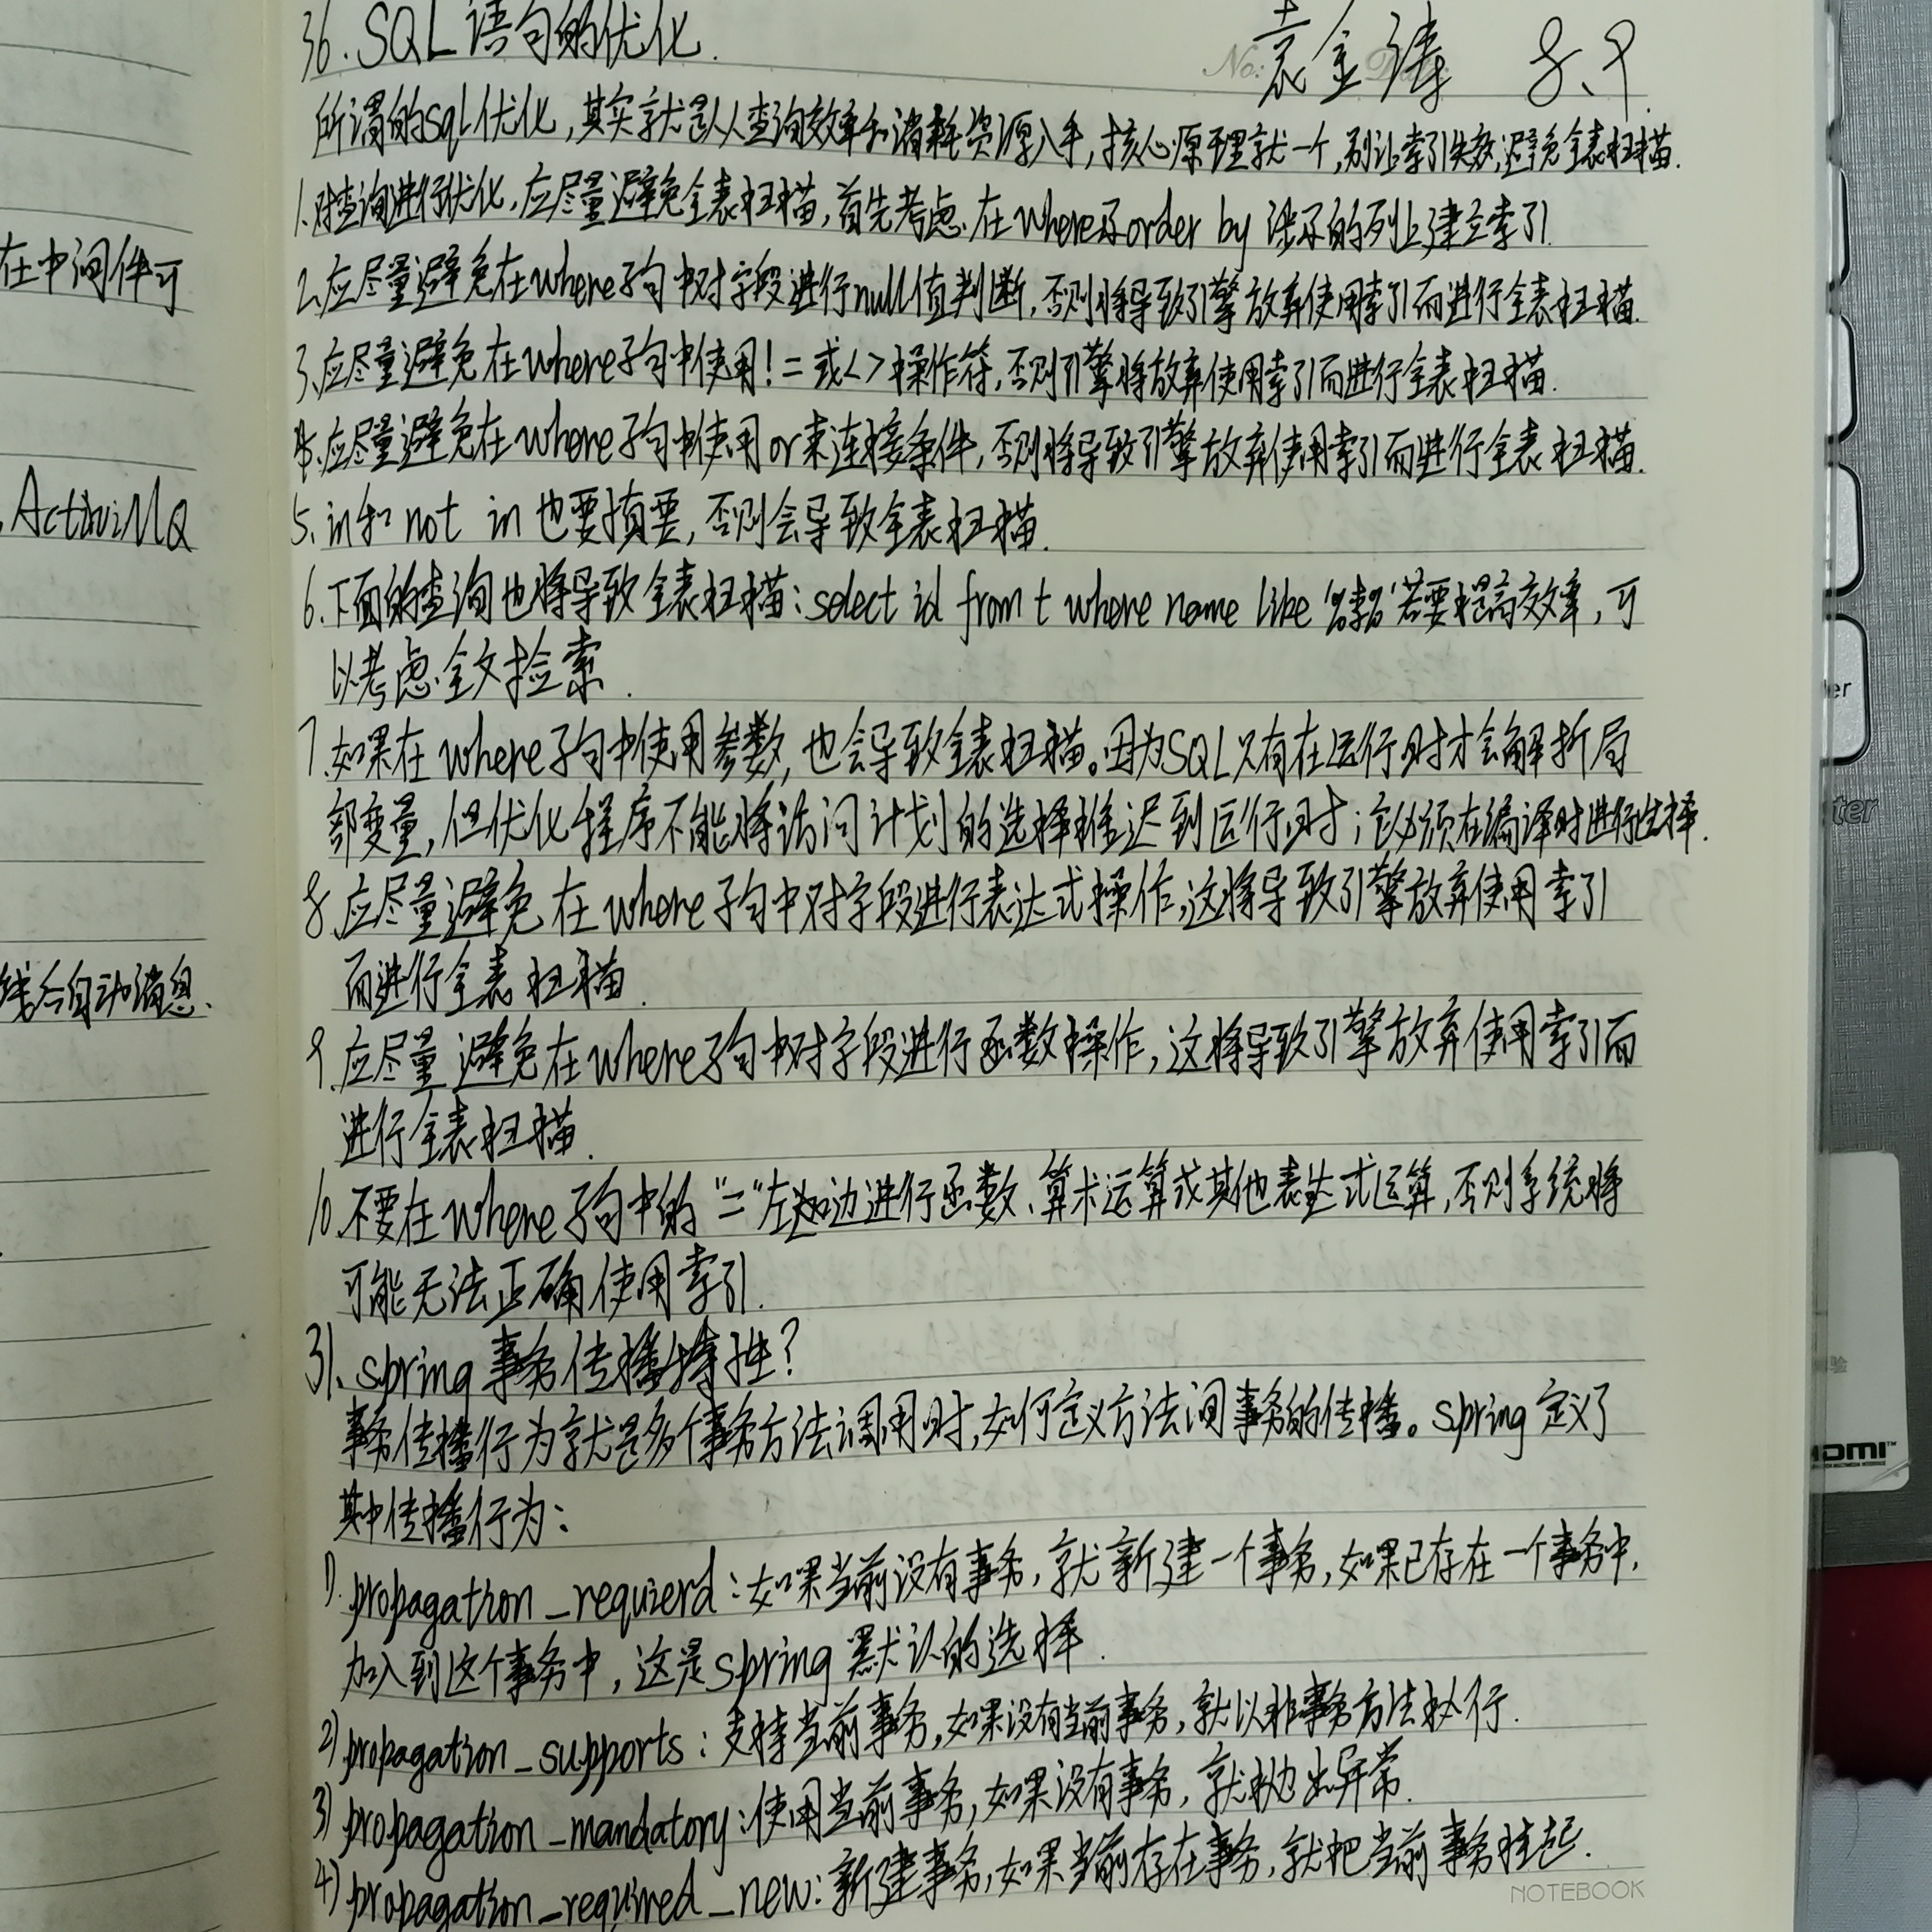 36. SQL语句的优化.
袁金涛 8.9
所谓的sql优化,其实就是从查询效率和消耗资源入手,核心原理就一个,别让索引失效,避免全表扫描.
1.对查询进行优化,应尽量避免全表扫描,首先考虑.在where及order by 涉及的列上建立索引.
2.应尽量避免在where子句中对字段进行null值判断,否则将导致引擎放弃使用索引而进行全表扫描.
3.应尽量避免在where子句中使用!=或<>操作符,否则引擎将放弃使用索引而进行全表扫描.
4.应尽量避免在where子句中使用or来连接条件,否则将导致引擎放弃使用索引而进行全表扫描.
5.in和 not in 也要慎要,否则会导致全表扫描.
6.下面的查询也将导致全表扫描:select id from t where name like '%李%'若要提高效率,可
以考虑全文捡索.
7.如果在where子句中使用参数,也会导致全表扫描。因为SQL只有在运行时才会解析局
部变量,但优化程序不能将访问计划的选择推迟到运行时;它必须在编译时进行选择.
8.应尽量避免在where子句中对字段进行表达式操作,这将导致引擎放弃使用索引
而进行全表扫描.
9.应尽量避免在where子句中对字段进行函数操作,这将导致引擎放弃使用索引而
进行全表扫描.
10.不要在where子句中的"="左边进行函数、算术运算或其他表达式运算,否则系统将
可能无法正确使用索引.
31、spring事务传播特性?
事务传播行为就是多个事务方法调用时,如何定义方法间事务的传播。spring定义了
其中传播行为:
1).propagation_requierd:如果当前没有事务,就新建一个事务,如果已存在一个事务中,
加入到这个事务中,这是spring默认的选择.
2)propagation_supports:支持当前事务,如果没有当前事务,就以非事务方法执行.
3)propagation_mandatory:使用当前事务,如果没有事务,就抛出异常.
4)propagation_required_new:新建事务,如果当前存在事务,就把当前事务挂起.
NOTEBOOK
在中间件可
ActiviMQ
自动消息.
er
ter
HDMI